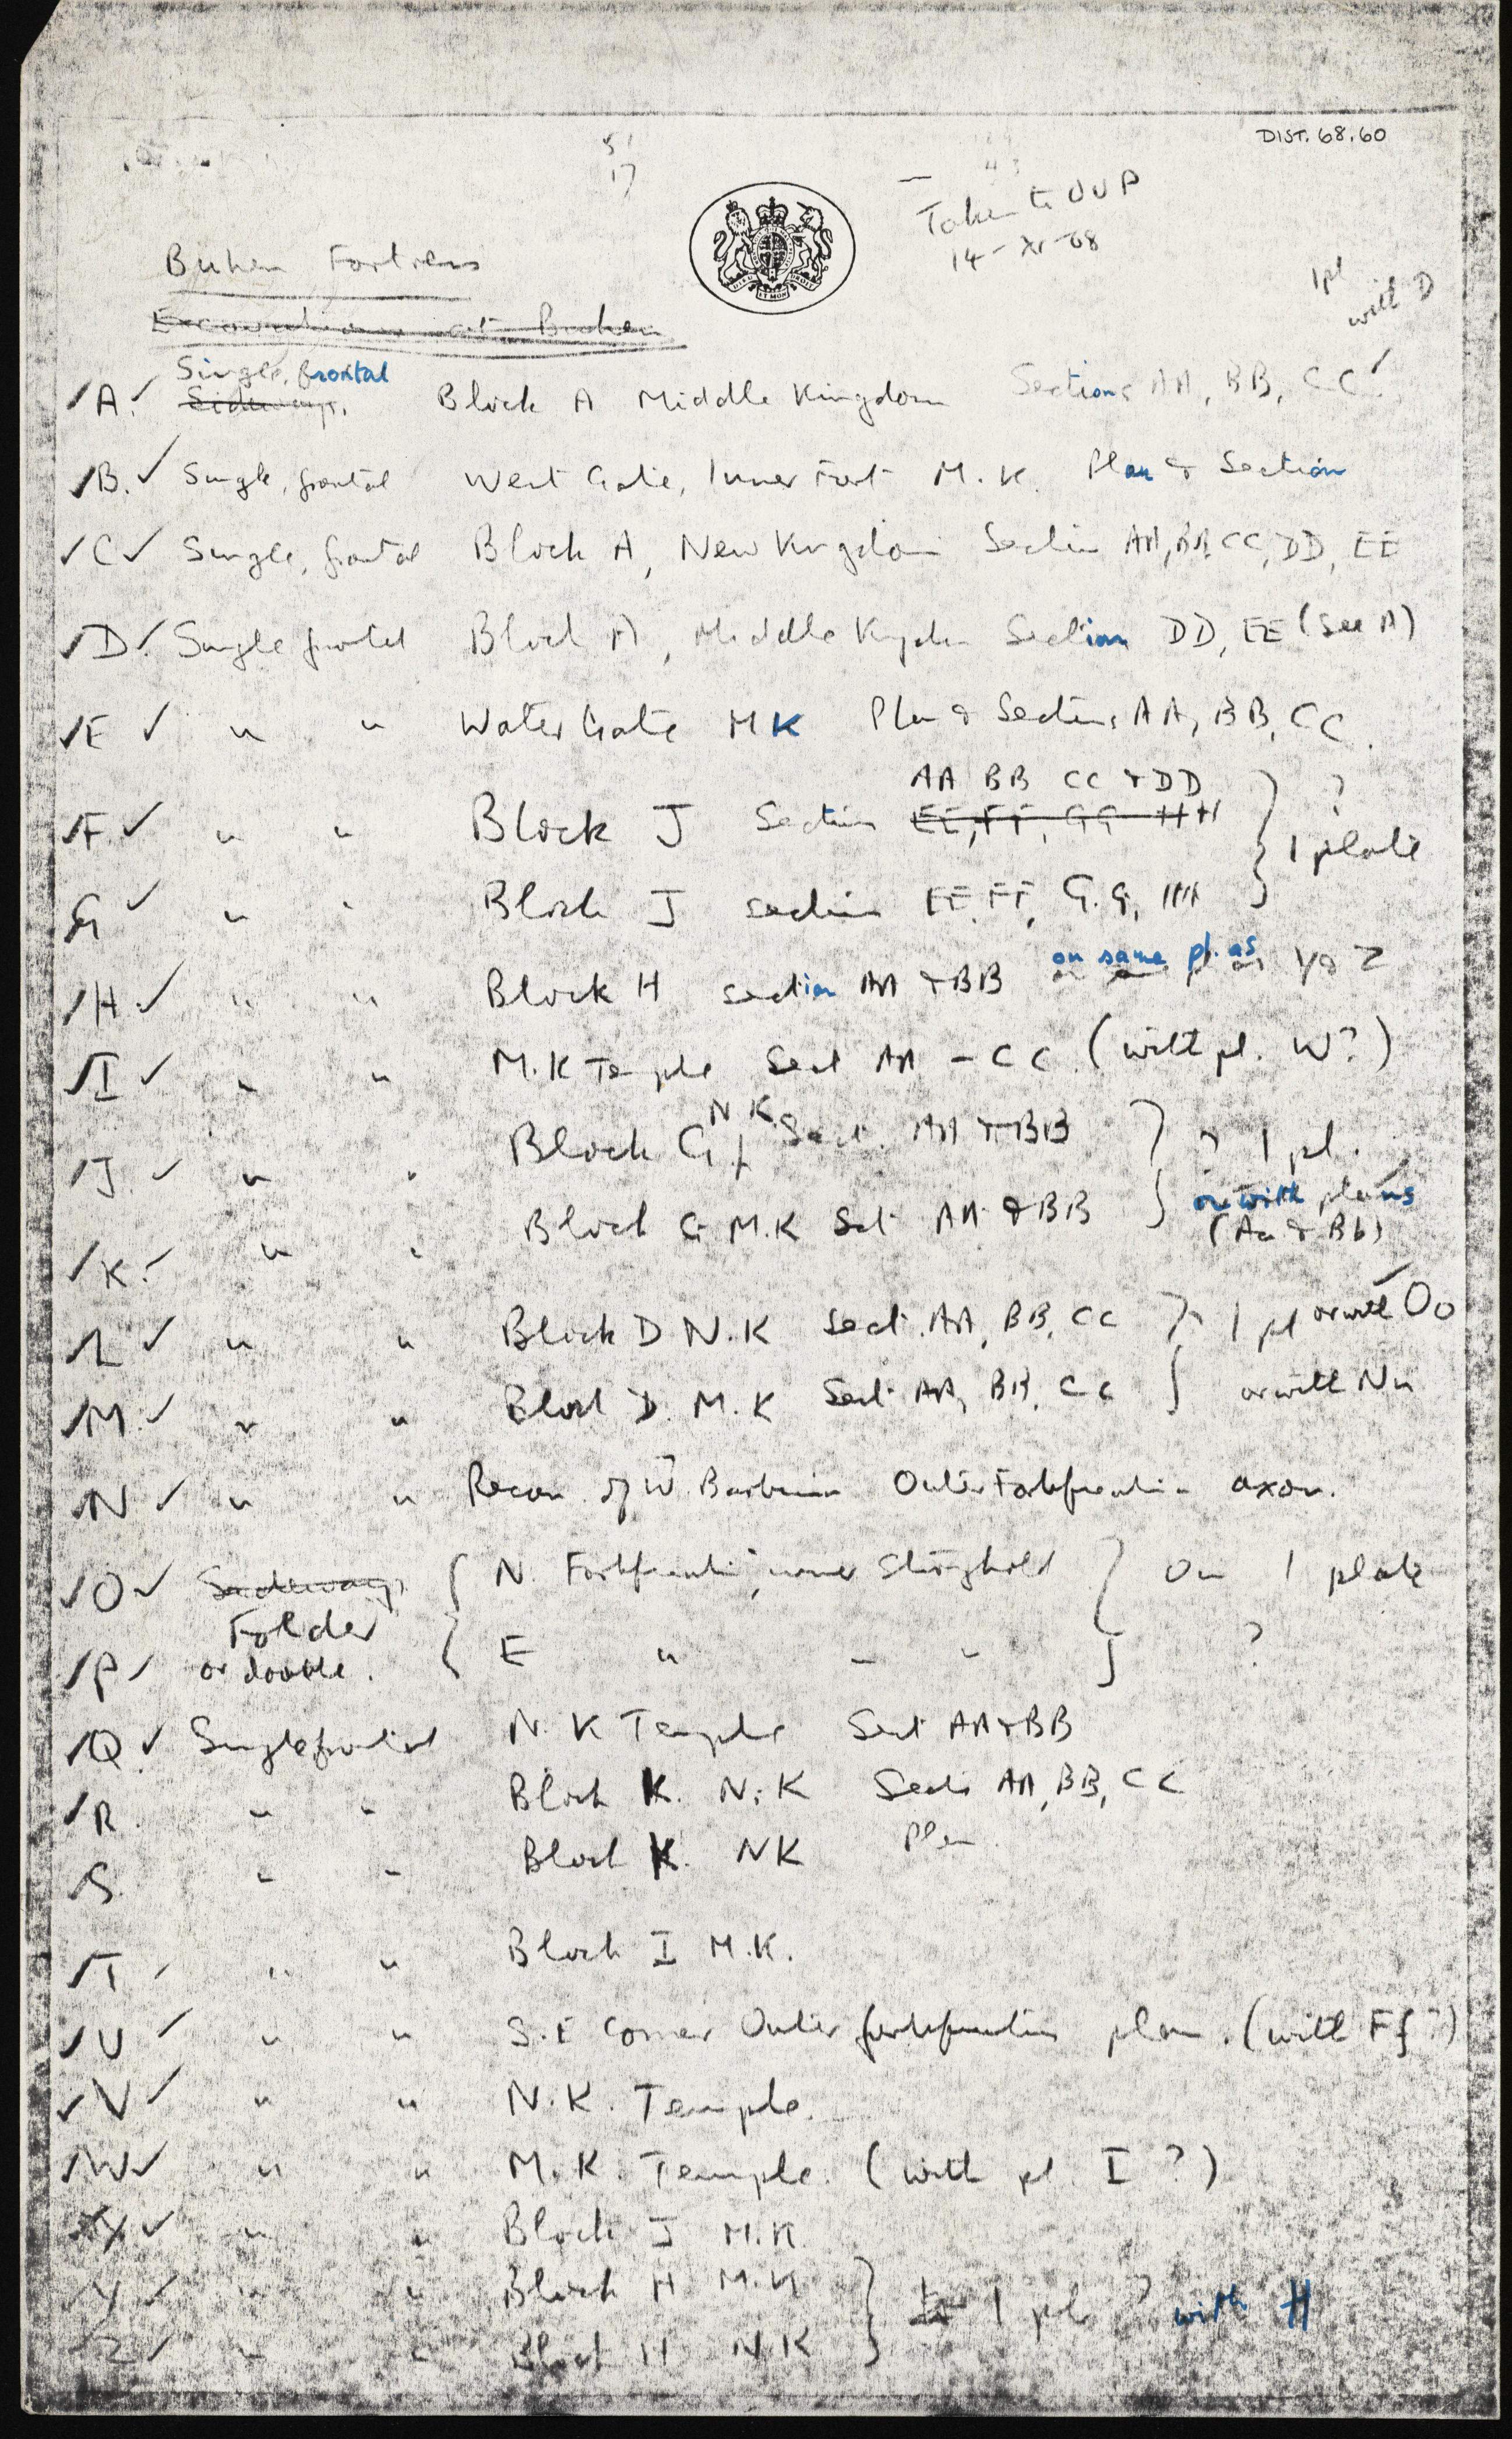 DIST. 68.60
51
17
Taken to OUP
14-XI-68
Buhen Fortress
Excavations at Buhen
1 pl
with D
Single, frontal
A. Sideways. Block A Middle Kingdom Sections AA, BB, CC
B. Single, frontal West Gate, Inner Fort M.K. Plan & Section
C Single, frontal Block A, New Kingdom Section AA, BB, CC, DD, EE
D. Single frontal Block A, Middle Kingdom Section DD, EE (see A)
E " " Water Gate MK Plan & Sections AA, BB, CC.
AA BB CC & DD ?
F. " " Block J Section EE, FF, GG HH
1 plate
G " " Block J section EE, FF, G.G, HH
on same pl. as
H. " " Block H section AA & BB Y & Z
I " " M.K Temple Sect AA - CC (with pl. W?)
J. " " Block G, NK Sect. AA & BB ? 1 pl.
K. " " Block G M.K Sect AA & BB or with plans
(Aa & Bb)
L " " Block D N.K Sect. AA, BB, CC 1 pl or with Oo
M. " " Block D. M.K Sect AA, BB, CC or with Nn
N " " Recon. of W. Barbican Outer Fortification axon.
O Sideways N. Fortification, inner Stronghold On 1 plate
Folder
P or double. E " " " ?
Q. Single frontal N. K Temple Sect AA & BB
R. " " Block K. N.K Sects AA, BB, CC
S. " " Block K. NK Plan
T " " Block I M.K.
U " " S.E Corner Outer fortification plan. (with Ff?)
V " " N.K. Temple.
W " " M.K. Temple. (with pl. I ?)
X " " Block J M.K
Y " " Block H M.K
1 pl ? with H
Z " " Block H N.K